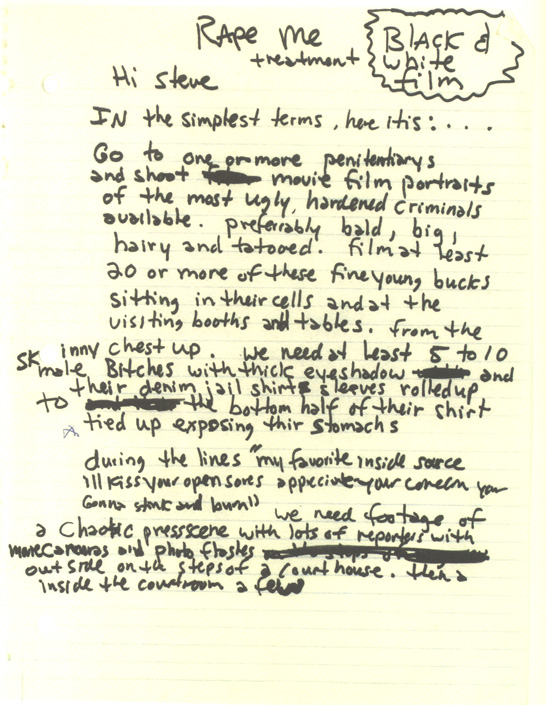 Rape Me
treatment
Black &
white
film
Hi Steve
IN the simplest terms, here it is: . . . .
Go to one or more penitentiarys
and shoot movie film portraits
of the most ugly, hardened criminals
available. preferrably bald, big,
hairy and tatooed. film at least
20 or more of these fine young bucks
sitting in their cells and at the
visiting booths and tables. from the
chest up. we need at least 5 to 10
skinny male Bitches with thick eyeshadow and
their denim jail shirts sleeves rolled up
to the bottom half of their shirt
tied up exposing thir stomachs
during the lines "my favorite inside source
I'll kiss your open sores appreciate your concern you
Gonna stink and burn" we need footage of
a chaotic press scene with lots of reporters with
movie cameras and photo flashes
outside on the steps of a court house. then a
inside the courtroom a few